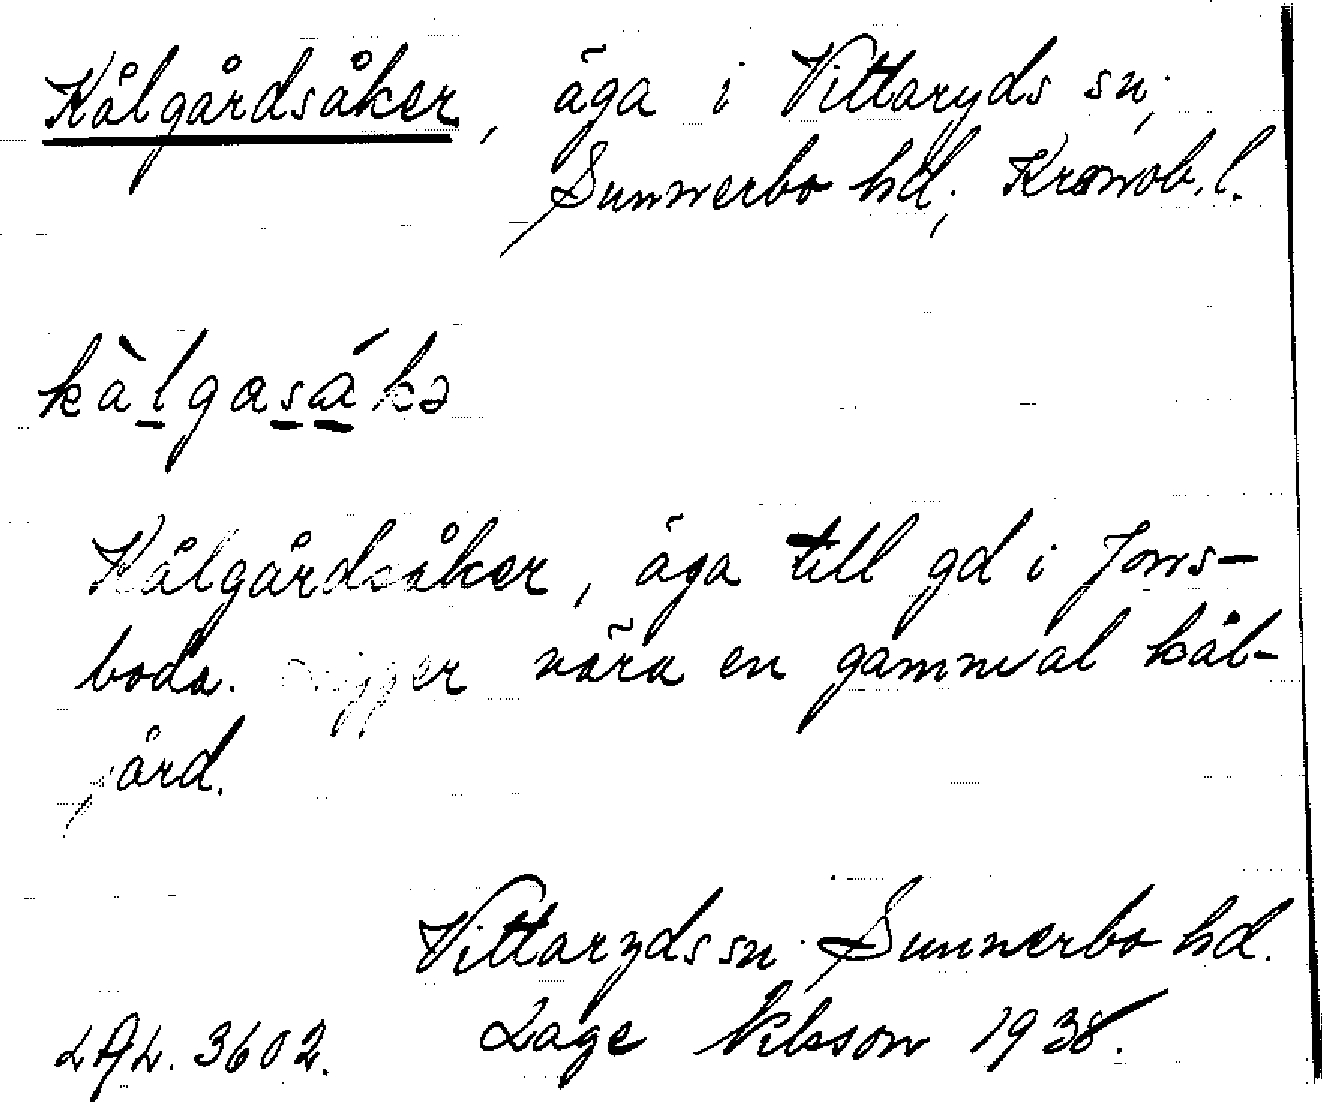 Kålgårdsåker, äga i Vittaryds sn,
Sunnerbo hd, Kronob. l.
kàlgasákə
Kålgårdsåker, äga till gd i Jons-
boda. Ligger nära en gammal kål-
gård.
Vittaryds sn. Sunnerbo hd.
LAL. 3602. Lage Nilsson 1938.